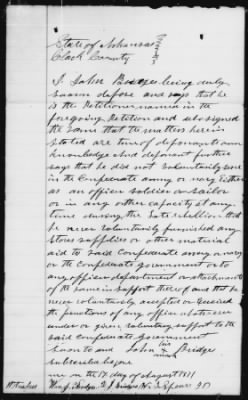 State of Arkansas
Clark County
I John Bridge being duly
sworn depose and says that he
is the Petitioner named in the
foregoing Petition and subsigned
the same that the matters herein
stated are true of deponants own
knowledge and deponant further
says that he did not voluntarily serve
in the Confederate army or navy either
as an officer soldier or sailor
or in any other capacity at any
time during the late rebellion that
he never voluntarily furnished any
stores supplies or other material
aid to said Confederate army or navy
or the Confederate government or to
any officer department or
of the same in support thereof and that he
never voluntarily accepted or exercised
the functions of any office whatsoever
under or given voluntary support to the
said Confederate Government
Sworn to and John his mark Bridge
subscribed before
me on the 17 day of August 1871